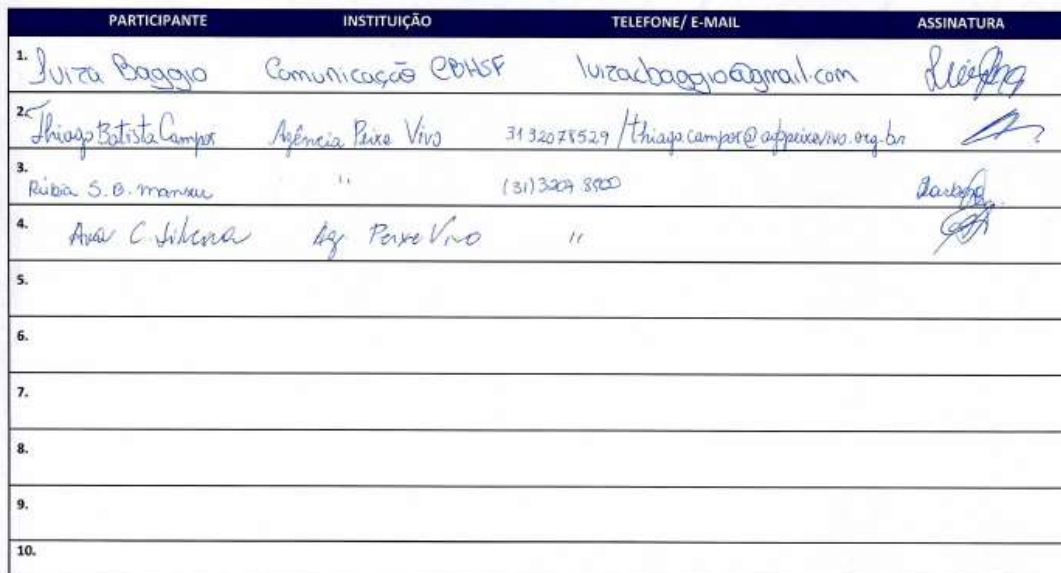 PARTICIPANTE INSTITUIÇÃO TELEFONE/ E-MAIL ASSINATURA
1. Luiza Baggio Comunicação CBHSF luizacbaggio@gmail.com
2. Thiago Batista Campos Agência Peixe Vivo 3132078529 / thiago.campos@agbpeixevivo.org.br
3. Rúbia S. B. Mansur " (31) 3207 8500
4. Ana C. Silveira Ag Peixe Vivo "
5.
6.
7.
8.
9.
10.